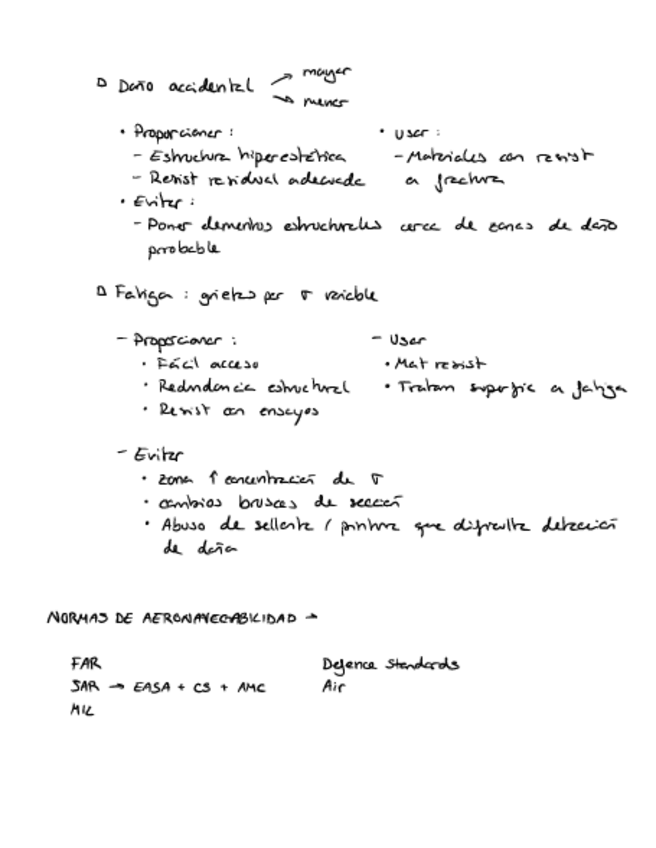 Daño accidental → mayor
→ menor
• Proporcionar :
- Estructura hiperestática
- Resist residual adecuada
• usar :
- Materiales con resist
a fractura
• Evitar :
- Poner elementos estructurales cerca de zonas de daño
probable
Fatiga : grietas por σ variable
- Proporcionar :
• Fácil acceso
• Redundancia estructural
• Resist con ensayos
- Usar
• Mat resist
• Tratam superfic a fatiga
- Evitar
• zona ↑ concentración de σ
• cambios bruscos de sección
• Abuso de sellante / pintura que dificulta detección
de daño
NORMAS DE AERONAVEGABILIDAD →
FAR
JAR → EASA + CS + AMC
MIL
Defence Standards
Air